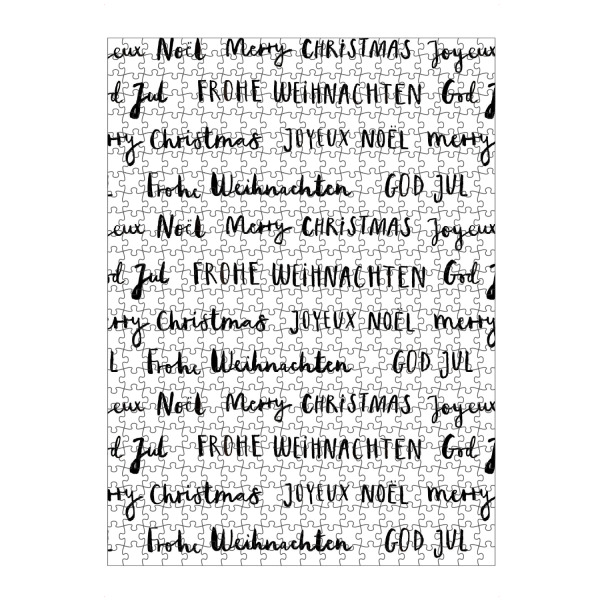 eux Noël Merry CHRiSTMAS Joyeux
d Jul FROHE WEiHNACHTEN God J
rry Christmas JOYEUX NOËL merry
Frohe Weihnachten GOD JUL
eux Noël Merry CHRiSTMAS Joyeux
d Jul FROHE WEiHNACHTEN God J
erry Christmas JOYEUX NOËL merry
L Frohe Weihnachten GOD JUL
eux Noël Merry CHRiSTMAS Joyeux
d Jul FROHE WEiHNACHTEN God J
rry Christmas JOYEUX NOËL merry
Frohe Weihnachten GOD JUL